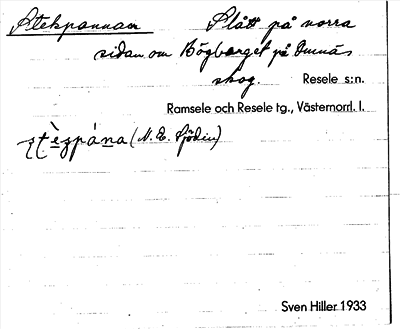 Stekpannan Slått på norra
sidan om Högberget på Omnäs
skog. Resele s:n.
Ramsele och Resele tg., Västernorrl. l.
(N. E. Sjödin)
Sven Hiller 1933